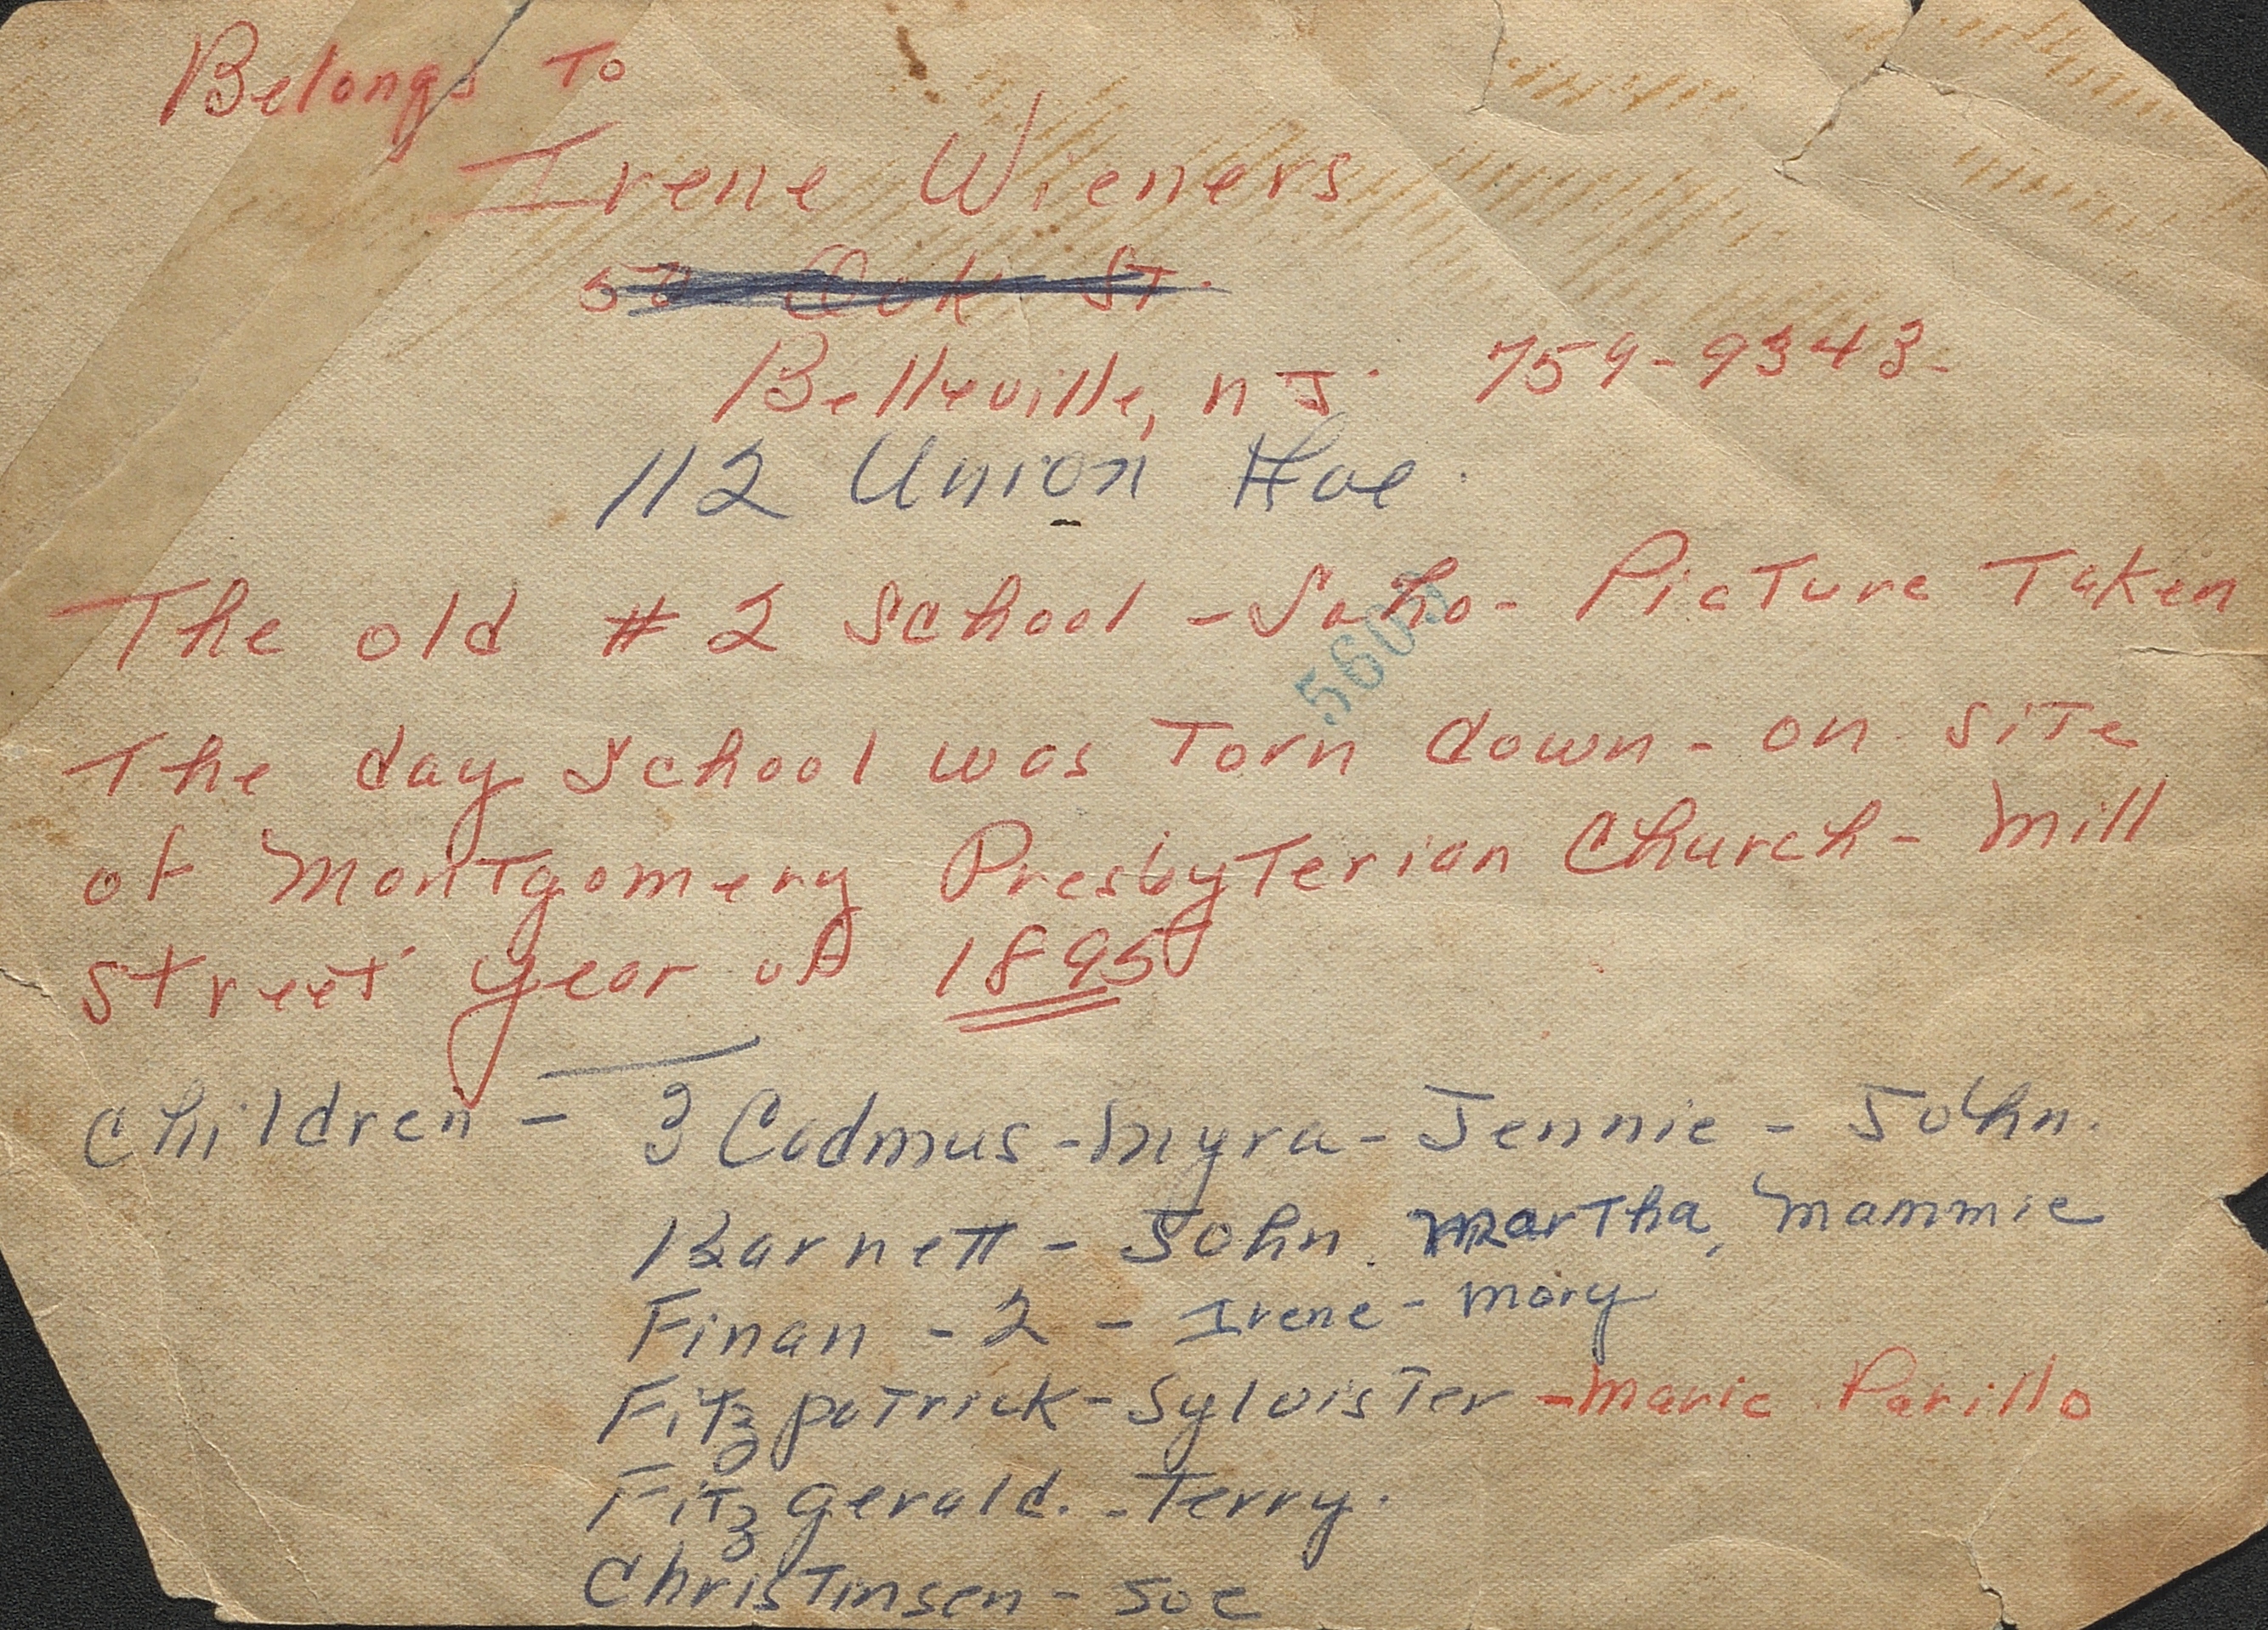 Belongs To
Irene Wieners
Oak St.
Belleville, n J. 759-9343-
112 Union Ave.
The old # 2 School - Soho - Picture Taken
560
The day School was Torn down - on site
of Montgomery Presbyterian Church - Mill
Street year of 1895
Children - 3 Cadmus - Myra - Jennie - John.
Barnett - John. Martha, Mammie
Finan - 2 - Irene - Mary
Fitzpatrick - Sylvister - Marie Parillo
Fitzgerald. - Terry.
Christinsen - Joe